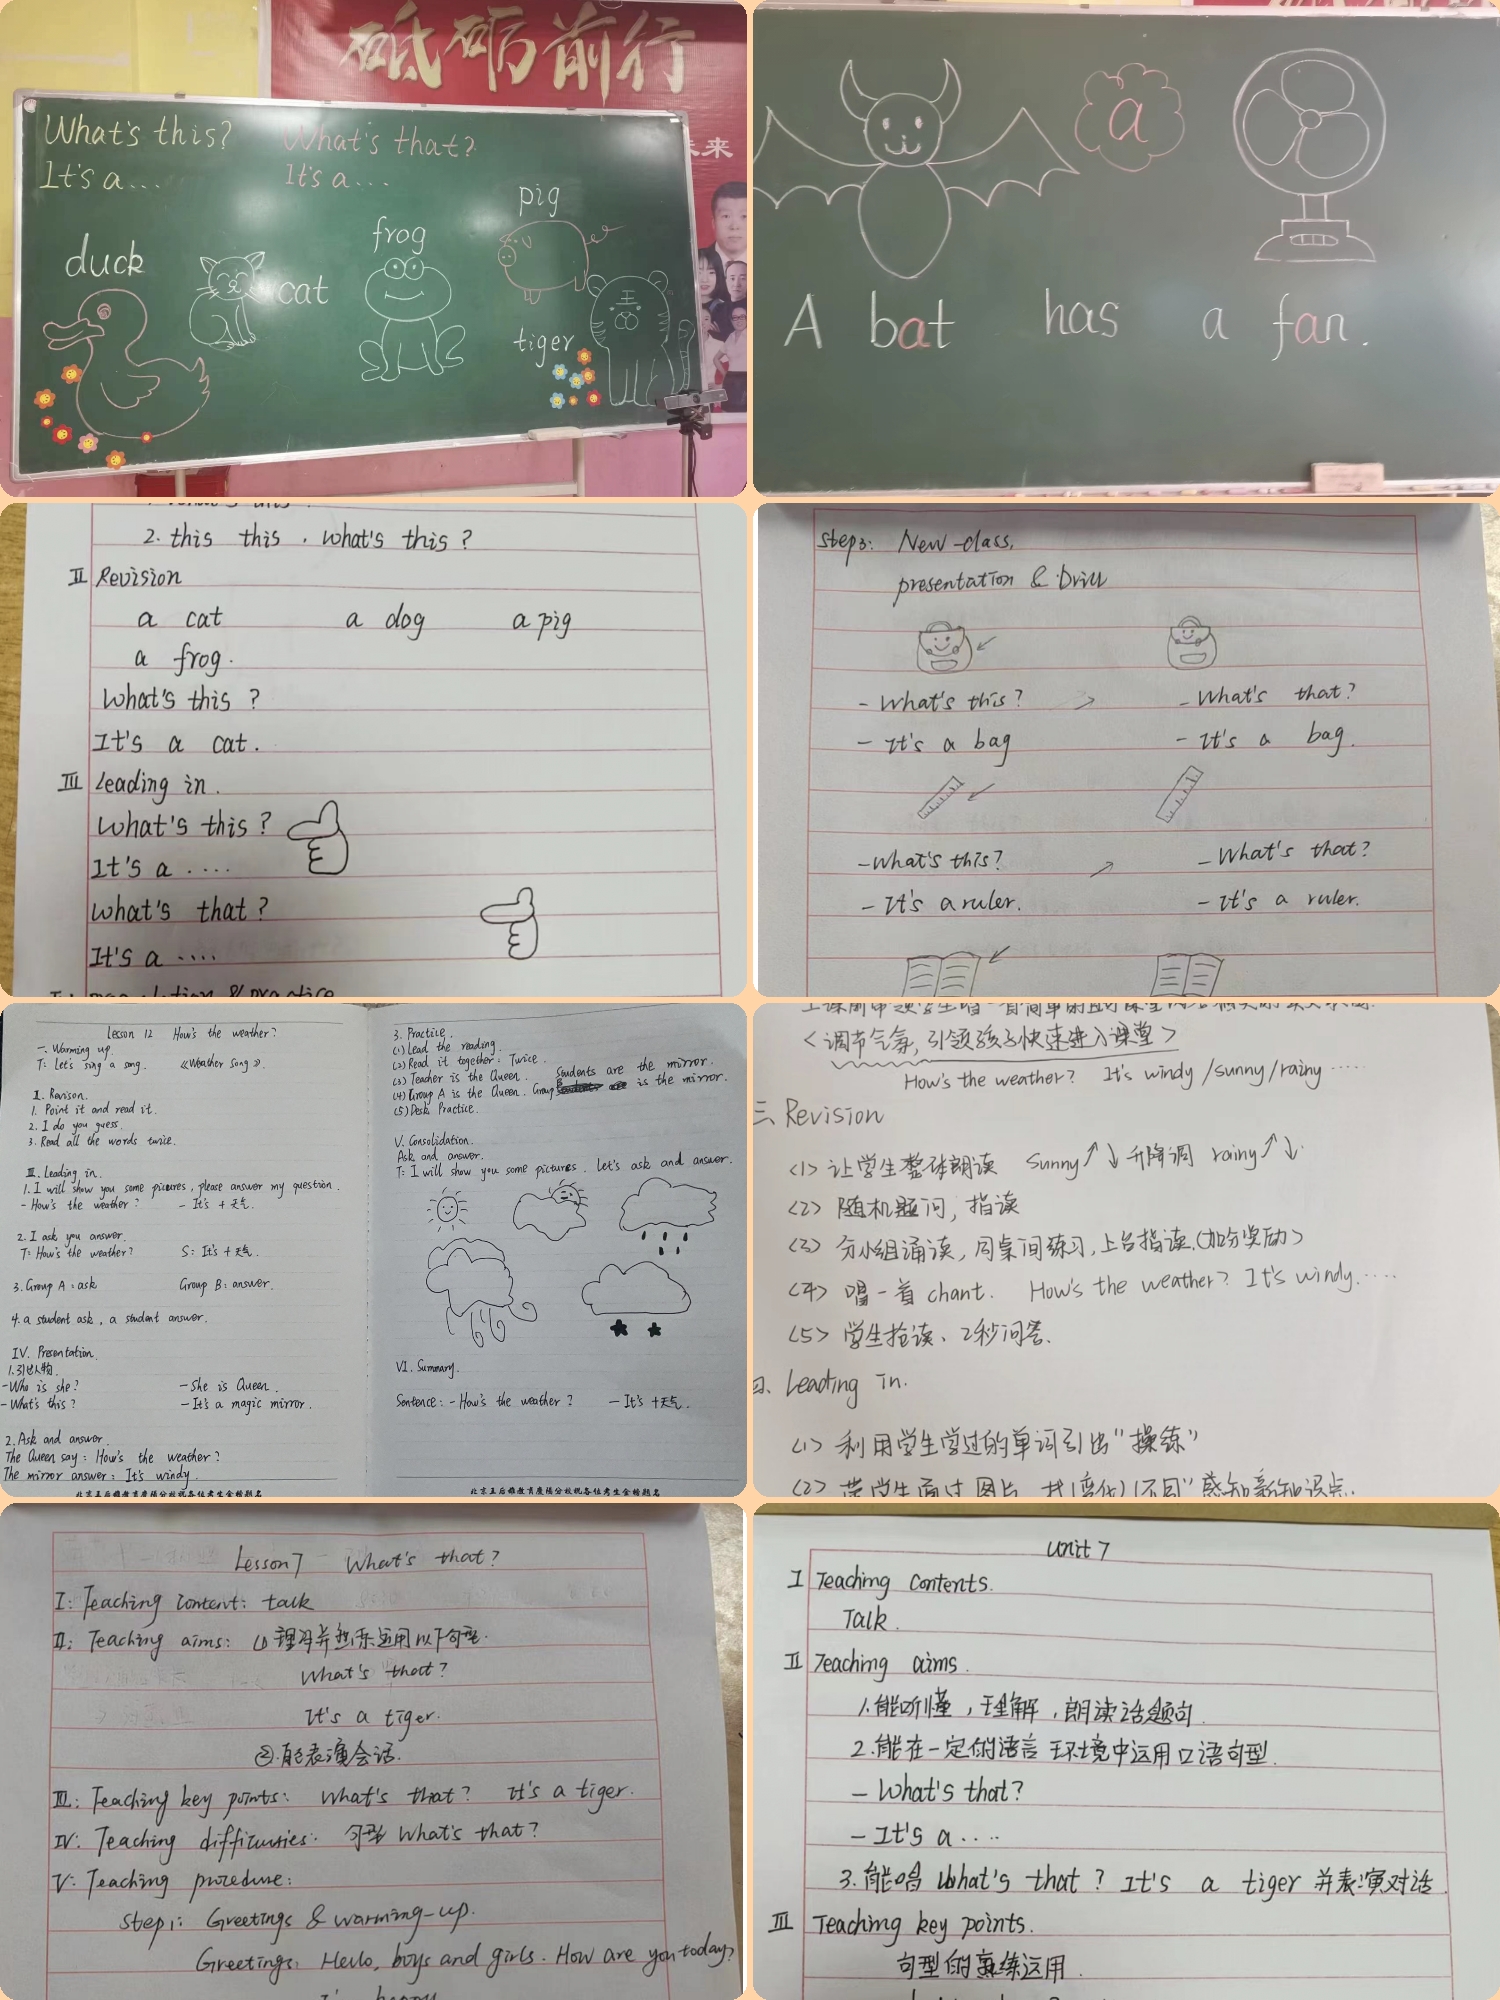 砥砺前行
未来
What's this?
It's a...
What's that?
It's a...
duck
cat
frog
pig
tiger
a
A bat has a fan.
2. this this . what's this ?
Ⅱ Revision
a cat a dog a pig
a frog.
What's this ?
It's a cat .
Ⅲ Leading in .
What's this ?
It's a ....
What's that ?
It's a ....
Step3: New-class.
presentation & Drill
- What's this? - What's that?
- It's a bag - It's a bag.
- What's this? - What's that?
- It's a ruler. - It's a ruler.
Lesson 12 How's the weather?
一. Warming up.
T: Let's sing a song. 《Weather Song》.
Ⅱ. Revison.
1. Point it and read it.
2. I do you guess.
3. Read all the words twice.
Ⅲ. Leading in.
1. I will show you some pictures, please answer my question.
- How's the weather? - It's + 天气.
2. I ask you answer.
T: How's the weather? S: It's + 天气.
3. Group A: ask Group B: answer.
4. a student ask, a student answer.
Ⅳ. Presentation.
1. 引出人物.
- Who is she? - She is Queen.
- What's this? - It's a magic mirror.
2. Ask and answer.
The Queen say: How's the weather?
The mirror answer: It's windy.
3. Practice.
(1) Lead the reading.
(2) Read it together: Twice.
(3) Teacher is the Queen. Students are the mirror.
(4) Group A is the Queen. Group B is the mirror.
(5) Desk Practice.
Ⅴ. Consolidation.
Ask and answer.
T: I will show you some pictures. Let's ask and answer.
Ⅵ. Summary.
Sentence: - How's the weather? - It's + 天气.
<调节气氛, 引领孩子快速进入课堂>
How's the weather? It's windy/sunny/rainy......
三 Revision
<1> 让学生整体朗读 sunny↑↓升降调 rainy↑↓.
<2> 随机题问, 指读
<3> 分小组诵读, 同桌间练习, 上台指读.(加分奖励)
<4> 唱一首chant. How's the weather? It's windy.....
<5> 学生抢读、2秒问答.
四. Leading in.
<1> 利用学生学过的单词引出"操练"
Lesson 7 What's that?
Ⅰ: Teaching content: talk
Ⅱ: Teaching aims: ①理解并熟练运用以下句型.
What's that?
It's a tiger.
②.能表演会话.
Ⅲ: Teaching key points: What's that? It's a tiger.
Ⅳ: Teaching difficulties: 句型 What's that?
Ⅴ: Teaching procedure:
Step1: Greetings & warming-up.
Greetings: Hello, boys and girls. How are you today?
Unit 7
Ⅰ Teaching contents.
Talk.
Ⅱ Teaching aims.
1.能听懂, 理解, 朗读话题句.
2.能在一定的语言环境中运用口语句型.
- What's that?
- It's a ....
3.能唱 What's that ? It's a tiger 并表演对话.
Ⅲ Teaching key points.
句型的熟练运用.